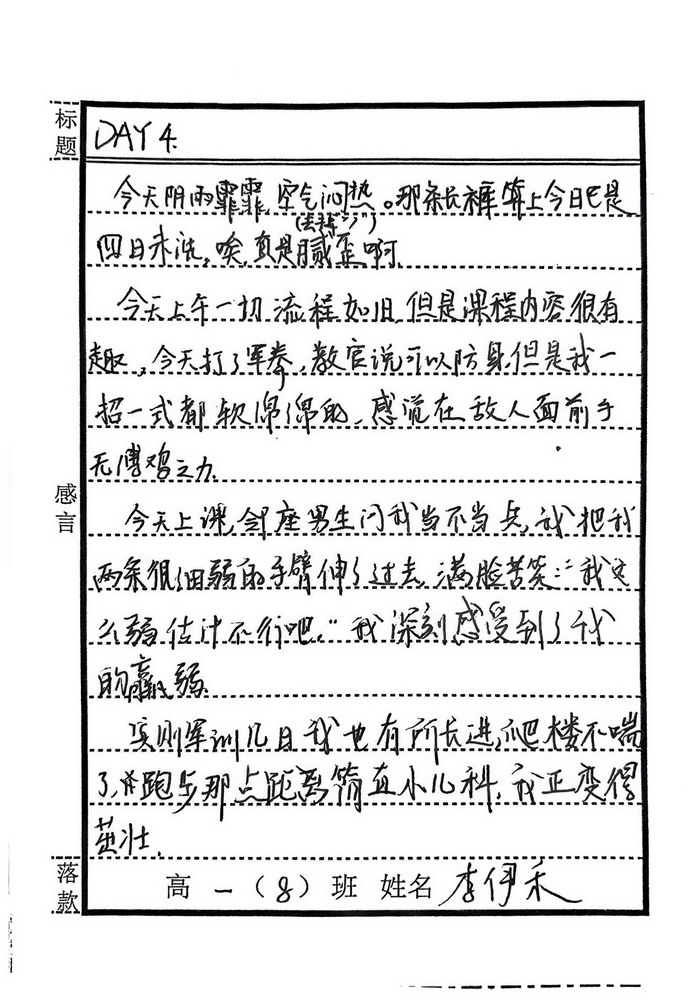 标题
DAY 4.
今天阴雨霏霏,空气闷热。那条长裤算上今日已是
四日未洗。唉,真是腻歪啊
今天上午一切流程如旧,但是课程内容很有
趣,今天打了军拳,教官说可以防身,但是我一
招一式都软绵绵的,感觉在敌人面前手
无缚鸡之力.
感言
今天上课,邻座男生问我当不当兵,我把我
两条很细弱的手臂伸了过去,满脸苦笑:“我这
么弱估计不行吧.”我深刻感受到了我
的羸弱.
实则军训几日我也有所长进,爬楼不喘
了,跑步那点距离简直小儿科,我正变得
茁壮.
落款
高一(8)班 姓名 李伊禾